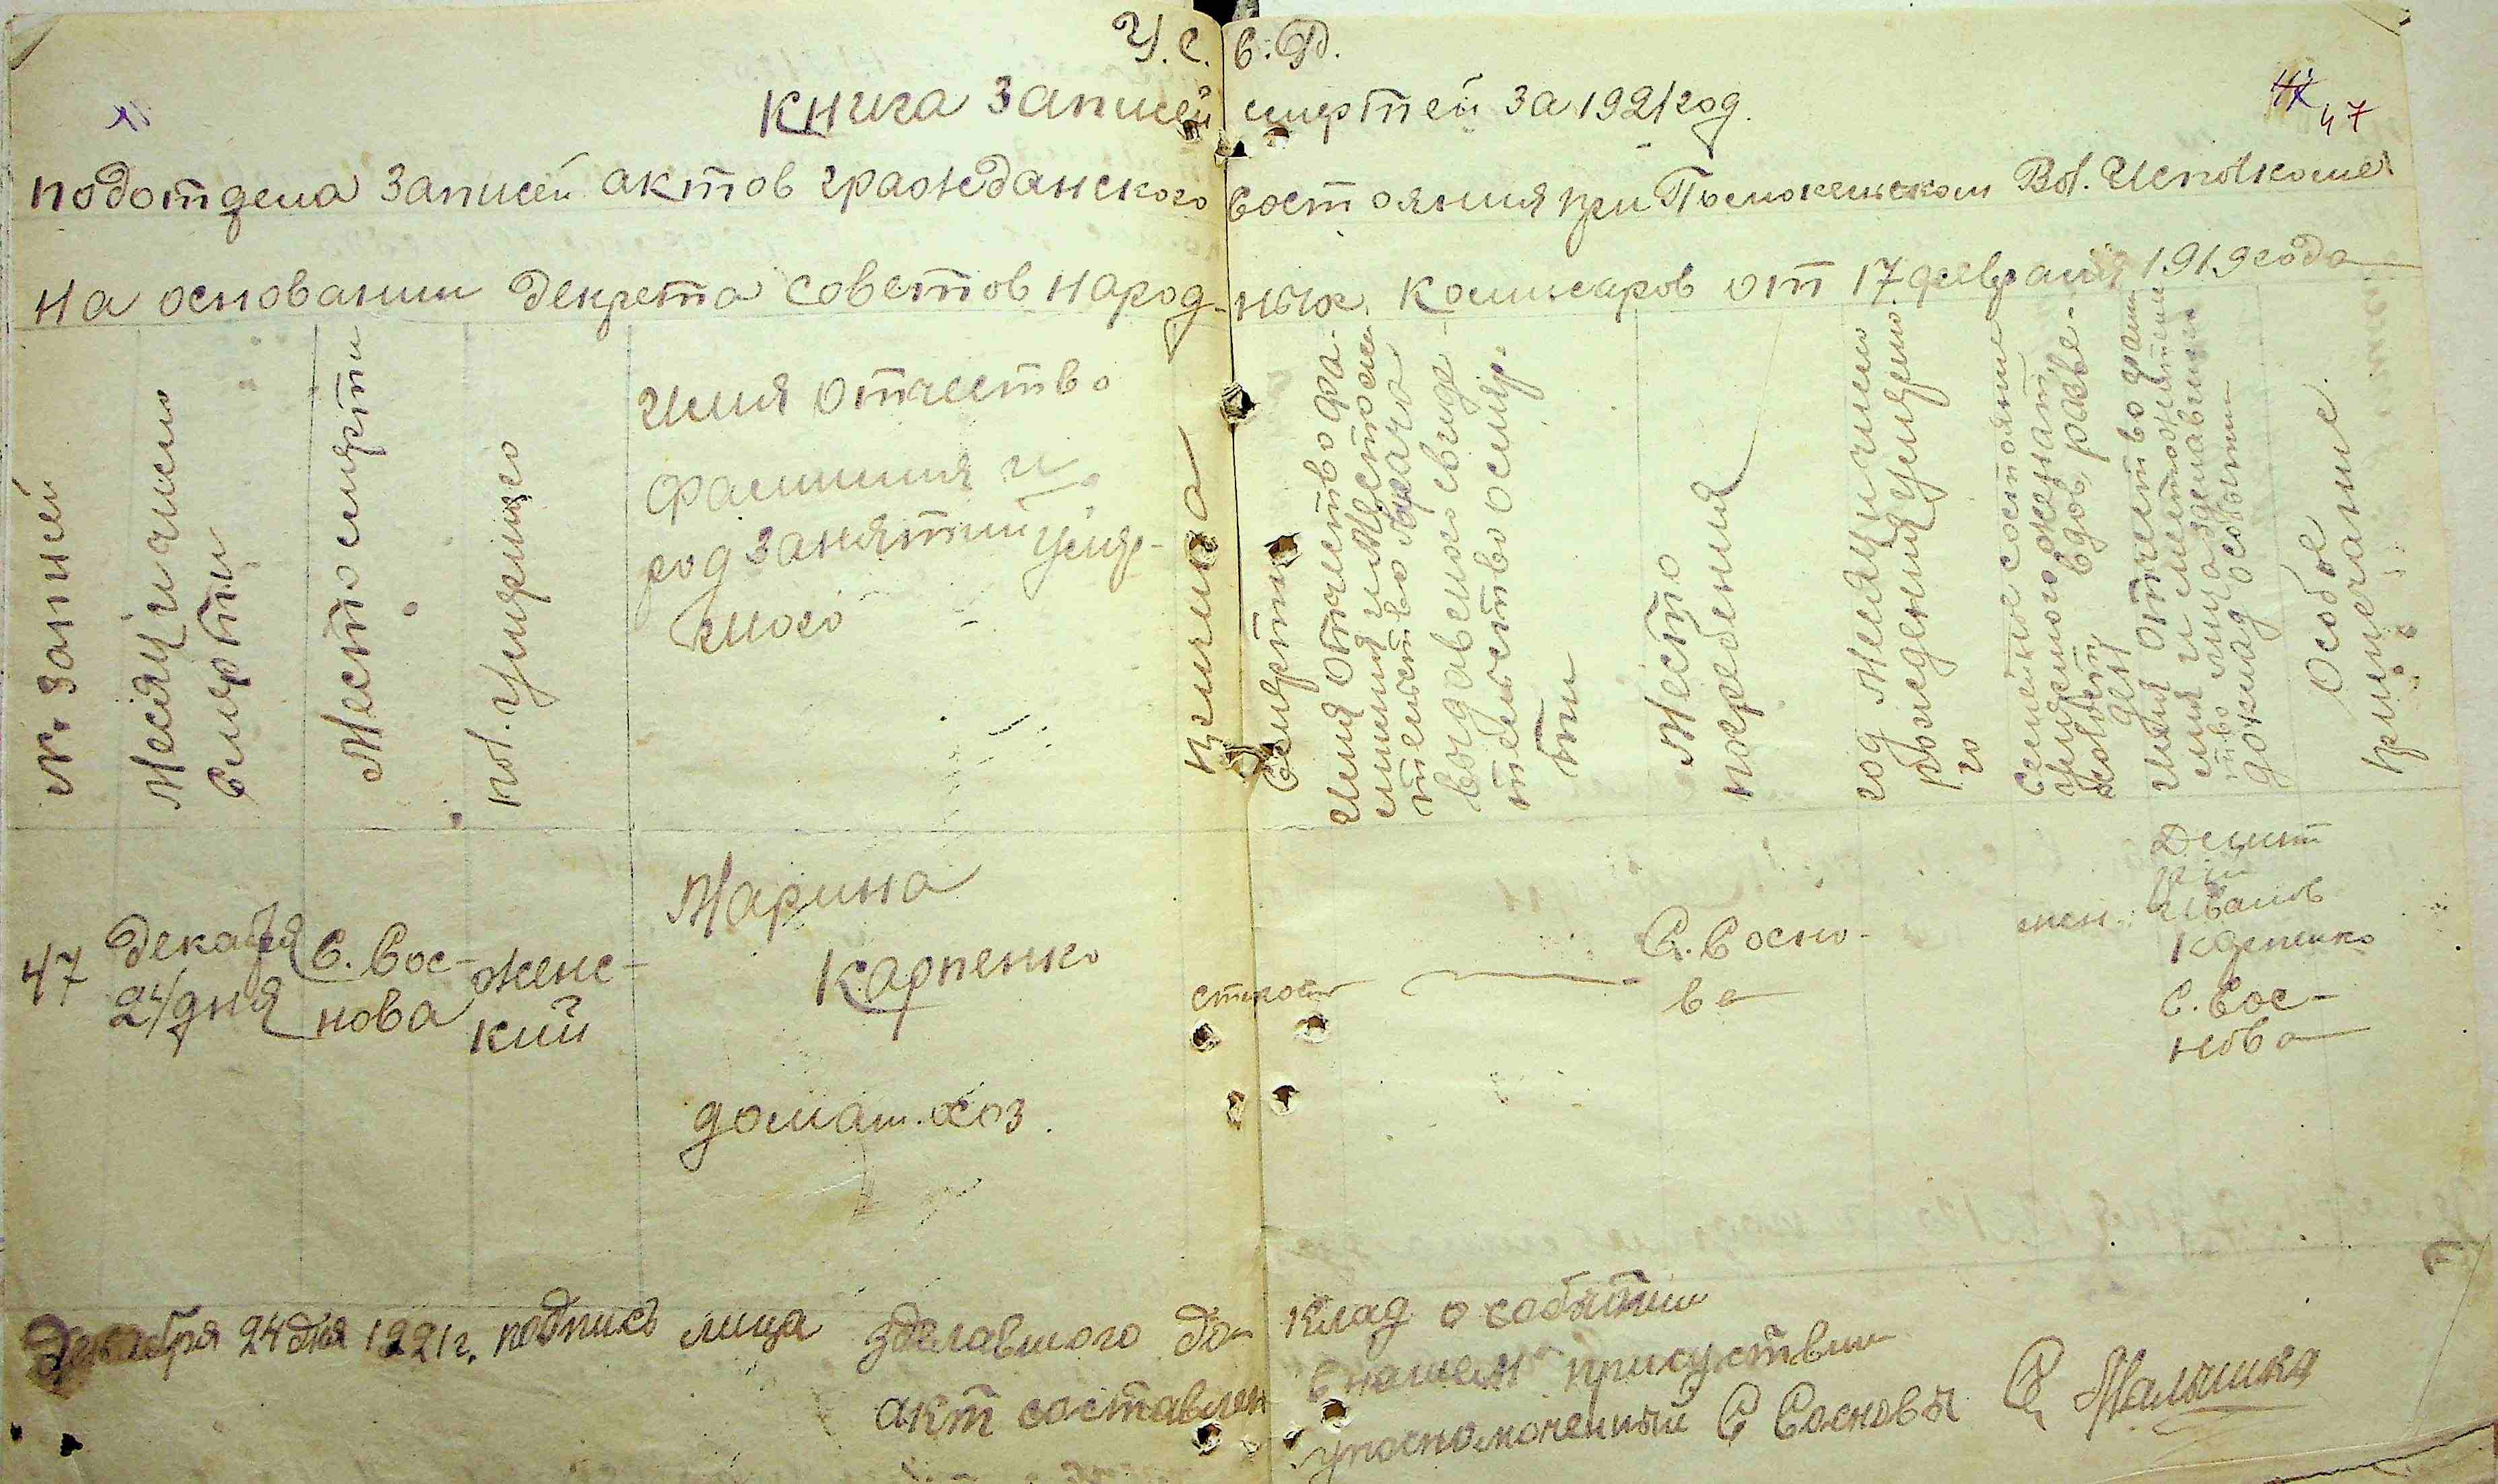 У.С.С.Р.
Книга Записей смертей за 1921 год.
47
подотдела Записей актов гражданского состояния при Вол. Исполкоме
На основании декрета советов Народ-ных Комисаров от 17 февраля 1919 года
№ Записей
Месяц и число
Смерти
Место смерти
пол. Умершего
Имя Отчество
Фамилия и
род занятий умер-
шого
причина
Смерти
Имя Отчество фа-
милия и Место жи
тельство врача
выдавшого свиде-
тельство о смер-
ти
Место
погребения
год месяц и число
рождения умершо
го
Семейное состояние
умершого женат,
холост, вдов, разве-
ден
Имя Отчество фами
лия и место житель
тво лица зделавшего
доклад о событии
Особое
примечание.
47
декабря
24 дня
С. Сос-
нова
Женс-
кий
Марина
Карпенко
домаш. хоз.
старость
С. Сосно-
ва
жен.
Дмит
рий
Иванов
Карпенко
С. Сос-
нова
Декабря 24 дня 1921 г. подпись лица зделавшого до-клад о событии
акт составлен в нашем присутствии
уполномоченный С Сосновы